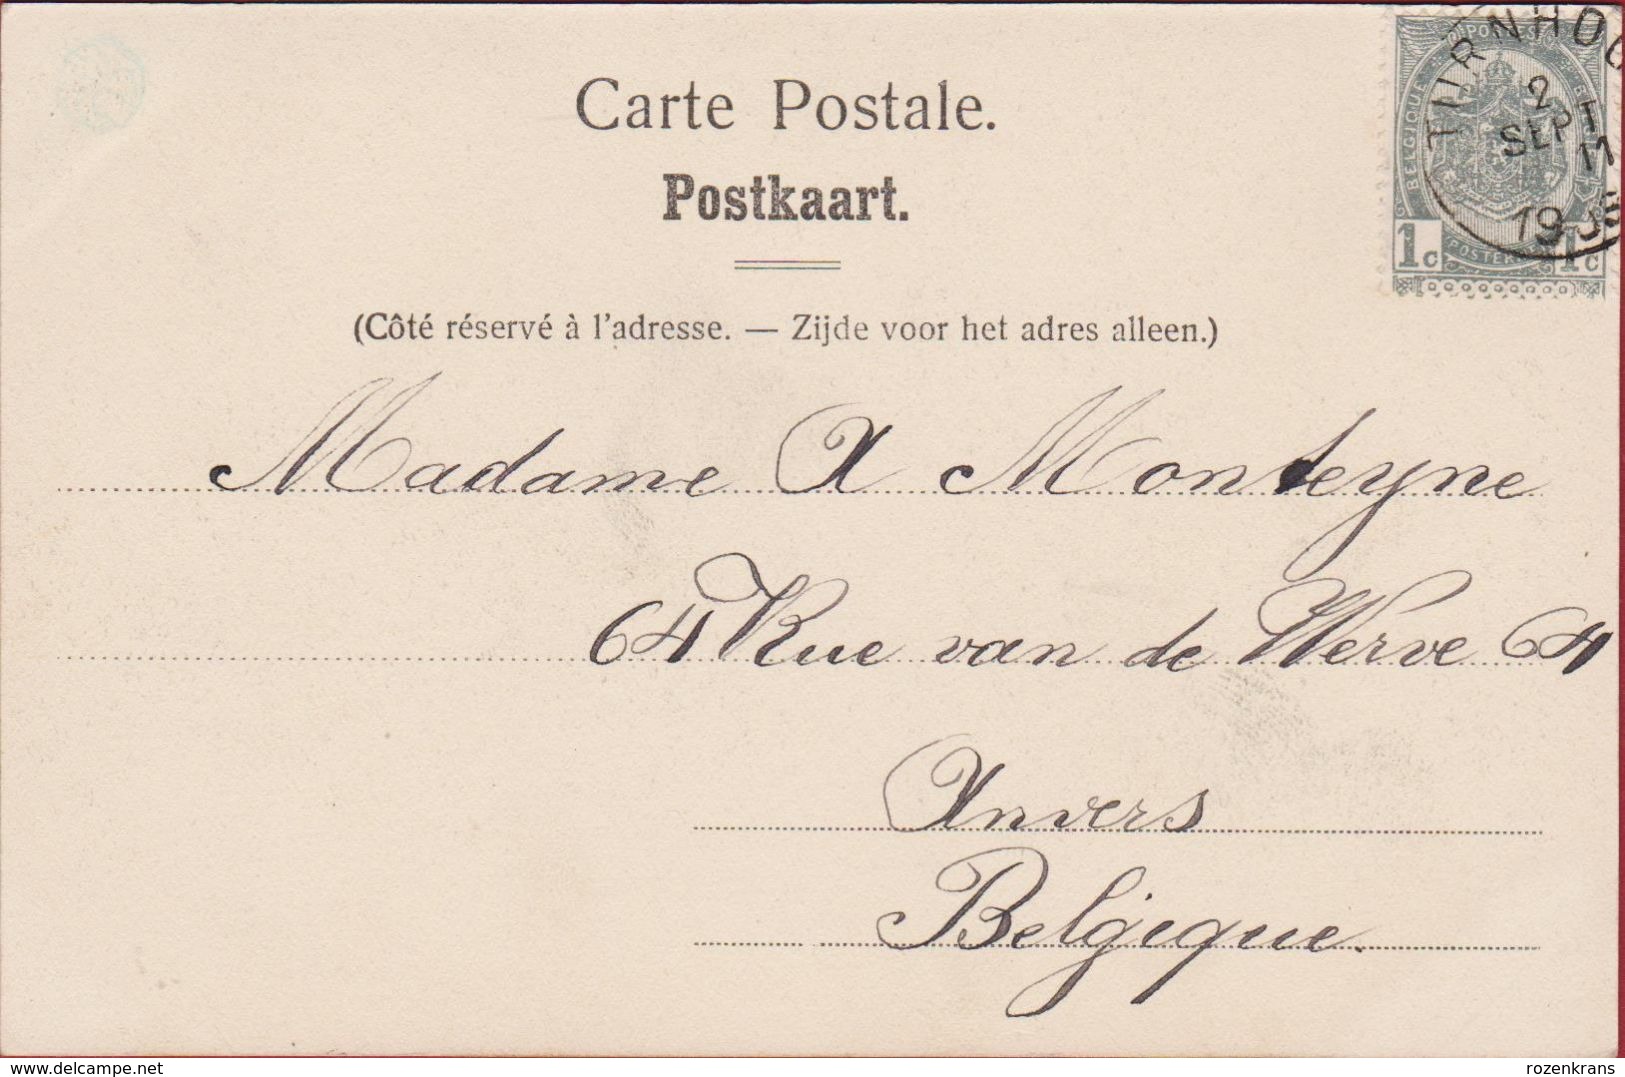 Carte Postale.
Postkaart.
(Côté réservé à l'adresse. — Zijde voor het adres alleen.)
POSTES
BELGIQUE
1c 1c
TURNHOU
2
SEPT
11
19
Madame A Monteyne
64 Rue van de Werve 64
Anvers
Belgique.
delcampe.net
rozenkrans